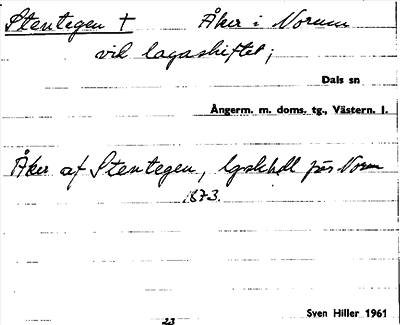 Stentegen † Åker i Norum
vid lagaskiftet;
Dals sn
Ångerm. m. doms. tg., Västern. l.
Åker af Stentegen, lgskhdl för Norum
1873.
23
Sven Hiller 1961